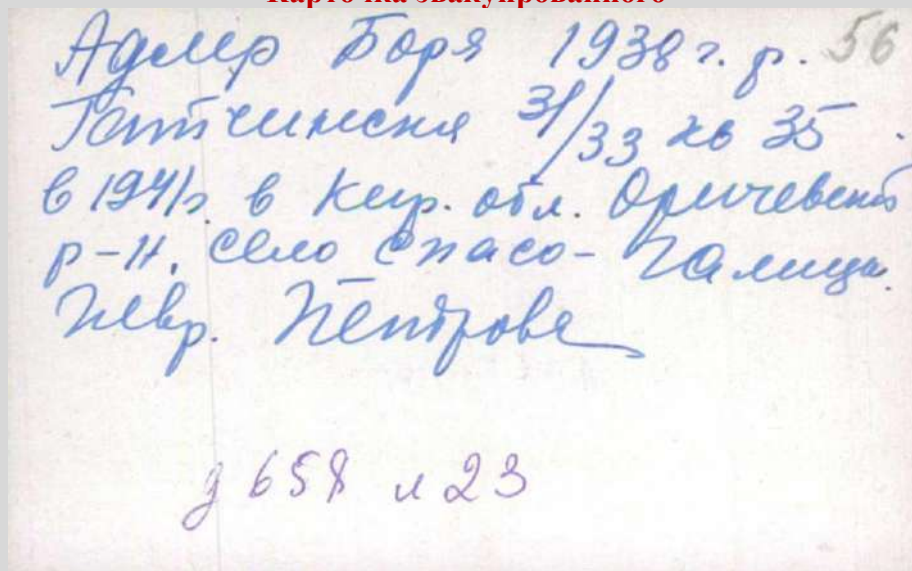 Карточка эвакуированного
Адлер Боря 1938 г. р. 56
Гатчинская 31/33 кв 35
в 1941г. в Кир. обл. Оричевский
р-н, село Спасо-Талица.
Петрова
д 658 л 23